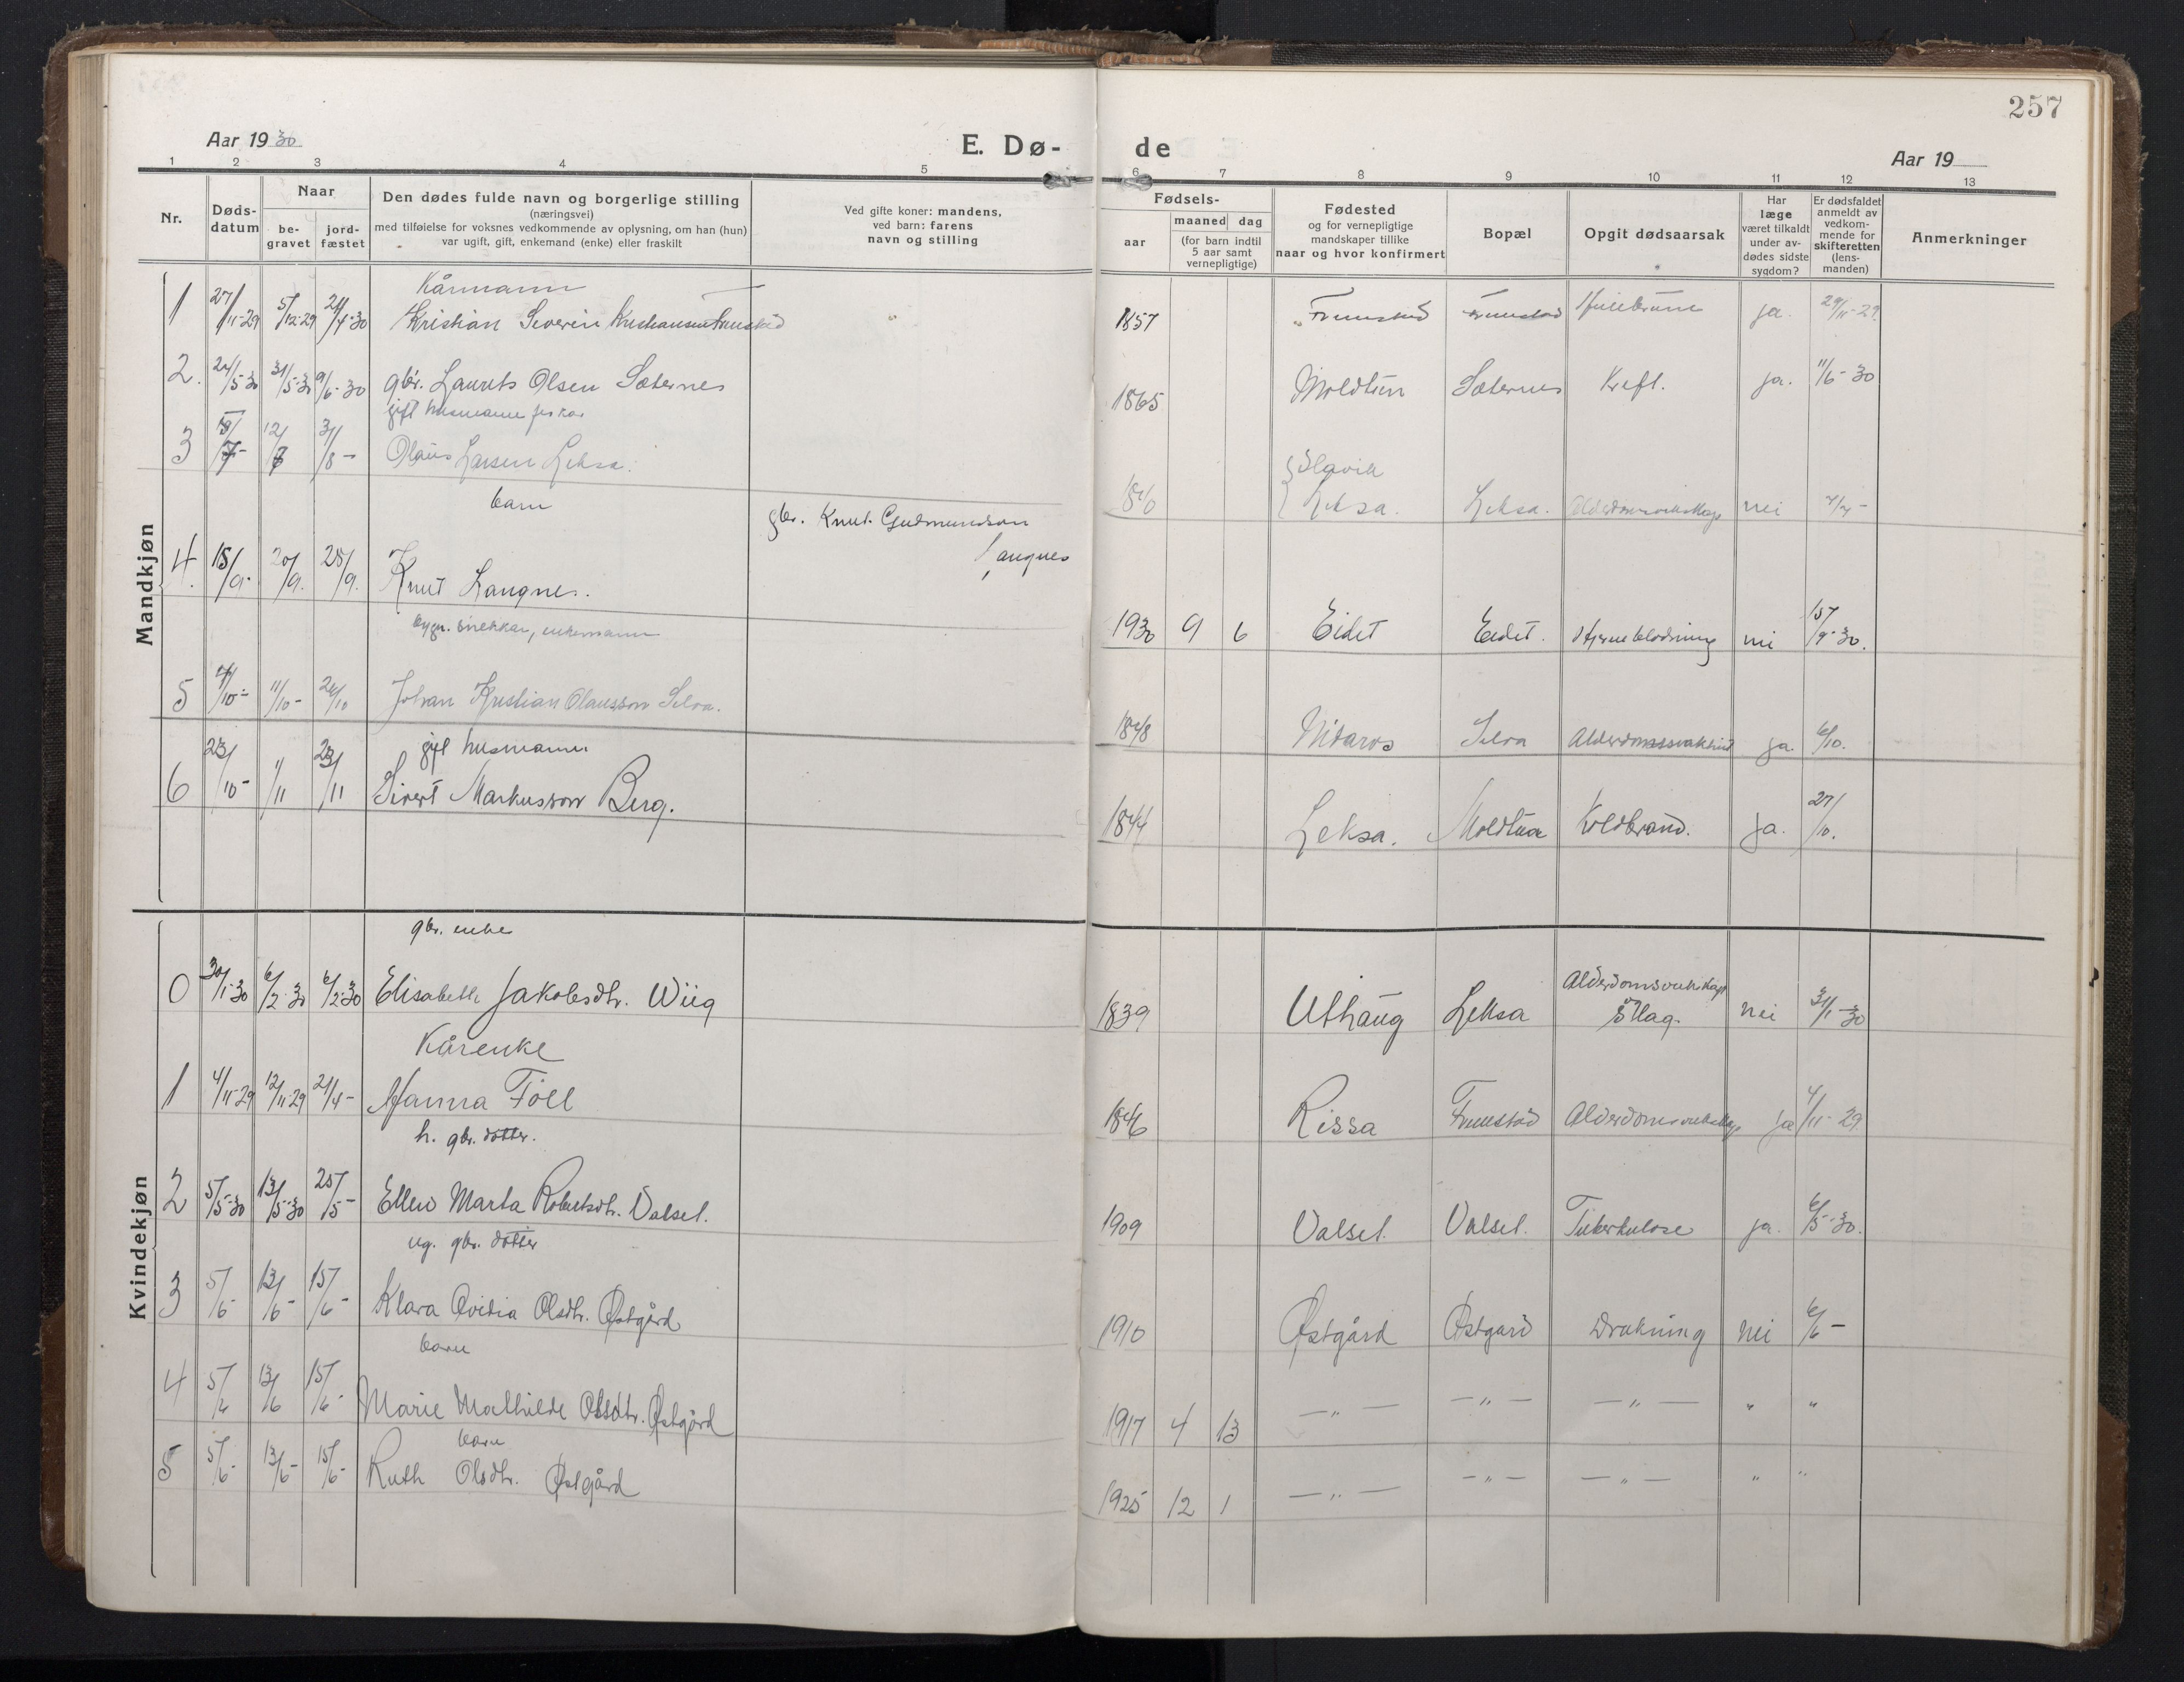 257
Aar 1930
E. Dø-
de
Aar 19
1 2 3 4 5 6 7 8 9 10 11 12 13
Nr.
Døds-
datum
Naar
be-
gravet
jord-
fæstet
Den dødes fulde navn og borgerlige stilling
(næringsvei)
med tilføielse for voksnes vedkommende av oplysning, om han (hun)
var ugift, gift, enkemand (enke) eller fraskilt
Ved gifte koner: mandens,
ved barn: farens
navn og stilling
Fødsels-
aar
maaned dag
(for barn indtil
5 aar samt
vernepligtige)
Fødested
og for vernepligtige
mandskaper tillike
naar og hvor konfirmert
Bopæl
Opgit dødsaarsak
Har
læge
været tilkaldt
under av-
dødes sidste
sygdom?
Er dødsfaldet
anmeldt av
vedkom-
mende for
skifteretten
(lens-
manden)
Anmerkninger
Mandkjøn
Kårmann
1 27/11-29 5/12-29 21/4-30 Kristian Severin Kristiansen 1857 ja. 29/11-29.
2. 24/5-30 31/5-30 9/6-30 gbr. Laurits Olsen Sæternes 1865 Sæternes Kreft. ja. 11/6-30
gift husmann
3 12/7 31/8 - Olaus Larsen Leksa. 1840 Leksa. Leksa. nei
barn
gbr. Knut Gudmundson
Langnes
4. 18/9- 20/9. 28/9. Knut Langnes. 1930 9 6 Eidet Eidet. Hjerneblødning nei 15/9-30.
bygn. snekkar, enkemann
5 4/10- 11/10- 26/10 Johan Kristian Olausson Selva. 1848 Nidaros Selva ja. 6/10.
gift husmann
6 23/10- 1/11 23/11 Sivert Markusson Berg. 1844 Leksa. Moldtua Koldbrand. ja. 27/10.
Kvindekjøn
gbr. enke
0 30/1-30 6/2-30 6/2-30 Elisabeth Jakobsdtr. Wiig 1839 Uthaug Leksa nei 31/1-30
Slag.
Kårenke
1 4/11-29 12/11-29 21/4- Nanna Föll 1846 Rissa ja 4/11-29.
h. gbr. dotter.
2 5/5-30 13/5-30 25/5- Ellen Marta Robertsdtr. Valsel. 1909 Valsel. Valsel. Tuberkulose ja. 6/5-30.
ug. gbr. dotter
3 5/6- 13/6- 15/6- Klara Ovidia Olsdtr. Østgård 1910 Østgård Østgard Drukning nei 6/6 -
barn
4 5/6 13/6 15/6- Marie Mathilde Olsdtr. Østgård 1917 4 13 - „ - - „ - - „ - „ „
barn
5 5/6- 13/6- 15/6- Ruth Olsdtr. Østgård 1925 12 1 - „ - - „ - - „ - „ „